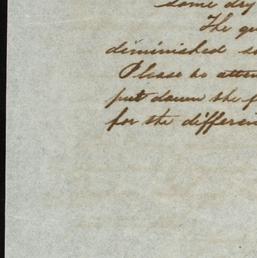 some dry
The qu
diminished so
Please to atten
put down the f
for the differen